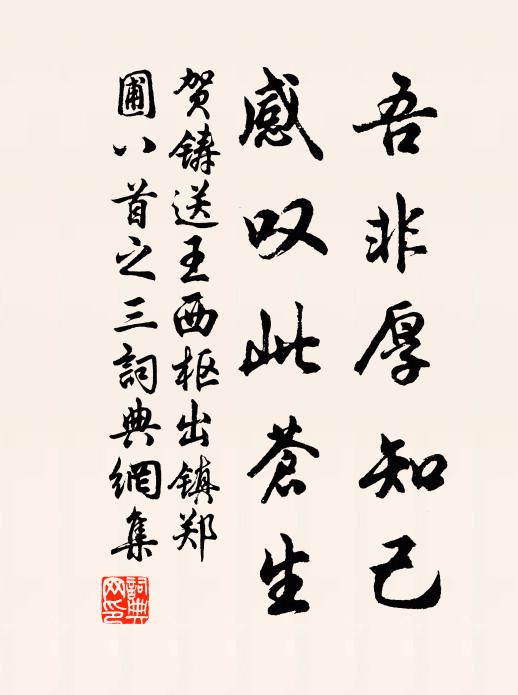 吾非厚知己
感叹此蒼生
贺鑄送王西枢出鎮郑
圃八首之三詞典網集
詞典网印